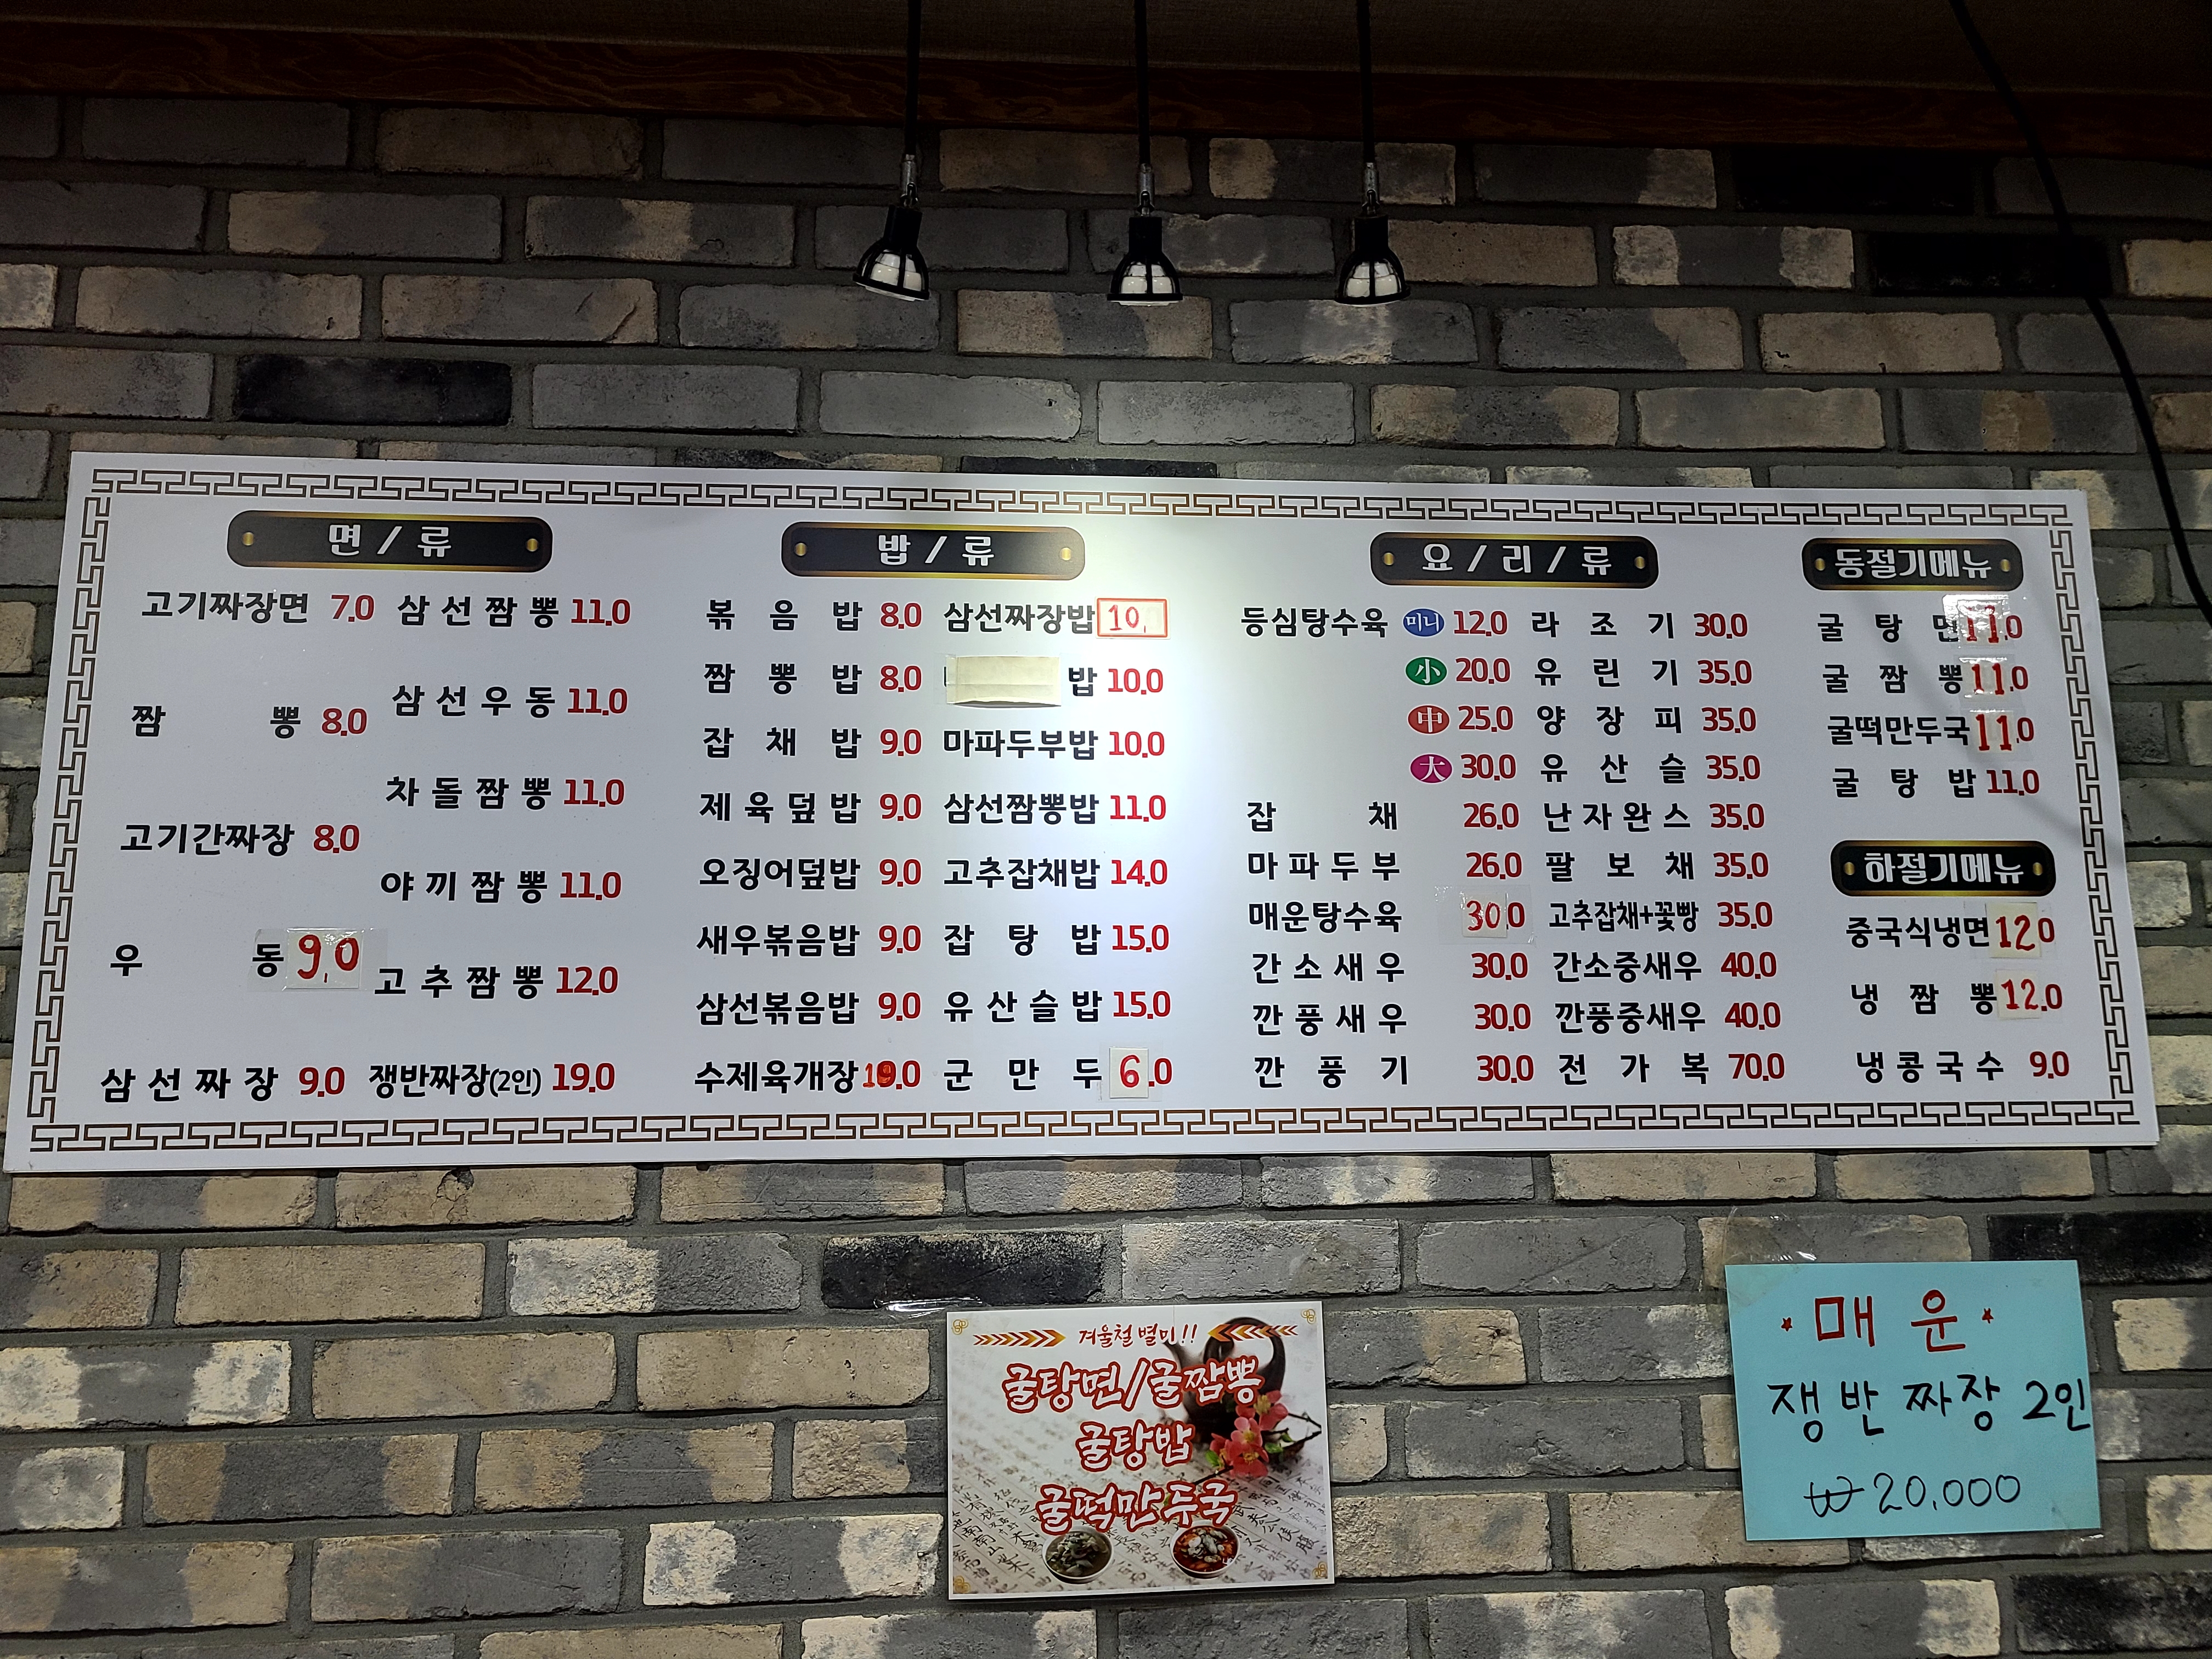 면 / 류
고기짜장면 7.0
짬 뽕 8.0
고기간짜장 8.0
우 동 9,0
삼 선 짜 장 9.0
삼 선 짬 뽕 11.0
삼 선 우 동 11.0
차 돌 짬 뽕 11.0
야 끼 짬 뽕 11.0
고 추 짬 뽕 12.0
쟁반짜장(2인) 19.0
밥 / 류
볶 음 밥 8.0
짬 뽕 밥 8.0
잡 채 밥 9.0
제 육 덮 밥 9.0
오징어덮밥 9.0
새우볶음밥 9.0
삼선볶음밥 9.0
수제육개장
삼선짜장밥 10,
밥 10.0
마파두부밥 10.0
삼선짬뽕밥 11.0
고추잡채밥 14.0
잡 탕 밥 15.0
유 산 슬 밥 15.0
군 만 두 6.0
요 / 리 / 류
등심탕수육 미니 12.0
小 20.0
中 25.0
大 30.0
잡 채 26.0
마 파 두 부 26.0
매운탕수육 30.0
간 소 새 우 30.0
깐 풍 새 우 30.0
깐 풍 기 30.0
라 조 기 30.0
유 린 기 35.0
양 장 피 35.0
유 산 슬 35.0
난 자 완 스 35.0
팔 보 채 35.0
고추잡채+꽃빵 35.0
간소중새우 40.0
깐풍중새우 40.0
전 가 복 70.0
동절기메뉴
굴 탕 면 11.0
굴 짬 뽕 11.0
굴떡만두국 11.0
굴 탕 밥 11.0
하절기메뉴
중국식냉면 12.0
냉 짬 뽕 12.0
냉 콩 국 수 9.0
겨울철 별미!!
굴탕면/굴짬뽕
굴탕밥
굴떡만두국
매 운
쟁반 짜장 2인
₩20,000